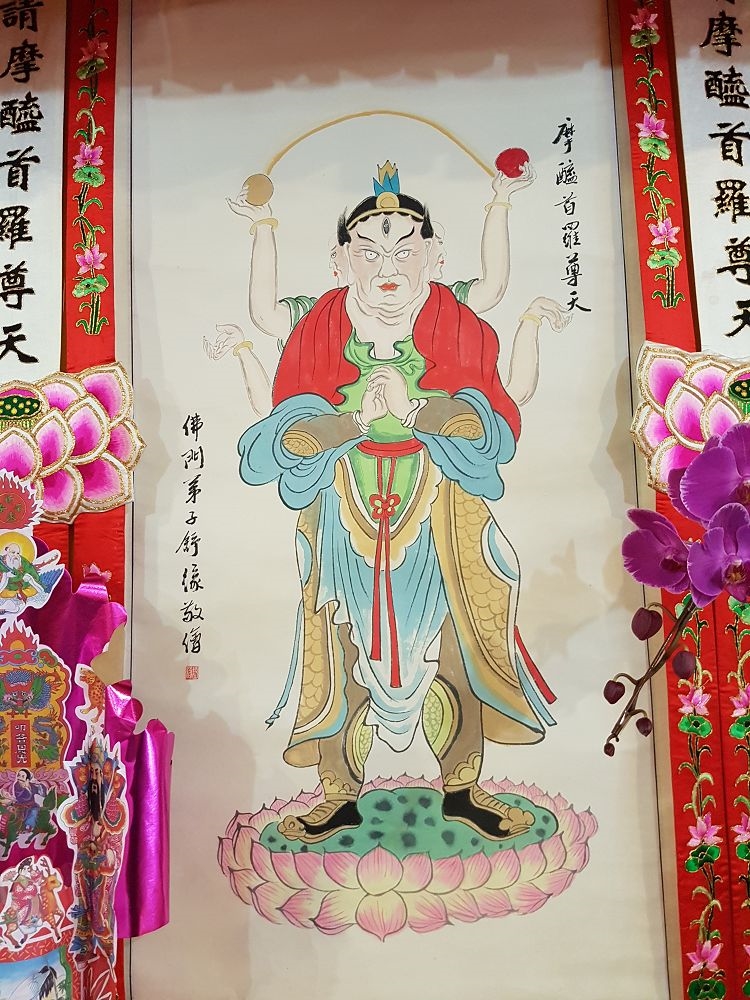 摩醯首羅尊天
摩醯首羅尊天
佛門弟子舒緣敬繪
請摩醯首羅尊天
叩答恩光